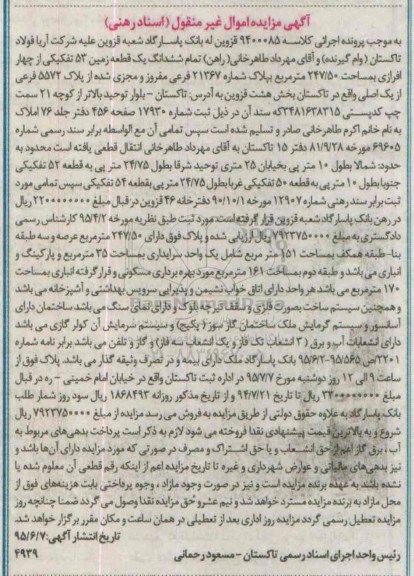 آگهی مزایده اموال غیر منقول (اسناد رهنی)
به موجب پرونده اجرائی کلاسه ۹۴۰۰۰۸۵ قزوین له بانک پاسارگاد شعبه قزوین علیه شرکت آریا فولاد
تاکستان (وام گیرنده) و آقای مهرداد طاهرخانی (راهن) تمام ششدانگ یک قطعه زمین ۵۳ تفکیکی از چهار
افرازی بمساحت ۲۴۷/۵۰ مترمربع بپلاک شماره ۲۱۳۶۷ فرعی مفروز و مجزی شده از پلاک ۵۵۷۲ فرعی
از یک اصلی واقع در تاکستان بخش هشت قزوین به آدرس: تاکستان - بلوار توحید بالاتر از کوچه ۲۱ سمت
چپ کدپستی ۳۴۸۱۶۳۸۳۱۵که سند آن در ذیل ثبت شماره ۱۷۹۳۰ صفحه ۴۵۶ دفتر جلد ۷۶ املاک
به نام خانم اکرم طاهرخانی صادر و تسلیم شده است سپس تمامی آن مع الواسطه برابر سند رسمی شماره
۶۹۶۰۵ مورخه ۸۱/۹/۲۸ دفتر ۱۵ تاکستان به آقای مهرداد طاهرخانی انتقال قطعی یافته است محدود به
حدود: شمالا بطول ۱۰ متر پی بخیابان ۲۵ متری توحید شرقا بطول ۲۴/۷۵ متر پی به قطعه ۵۲ تفکیکی
جنوبا بطول ۱۰ متر پی به قطعه ۵۰ تفکیکی غربا بطول ۲۴/۷۵ متر پی بقطعه ۵۴ تفکیکی سپس تمامی مورد
ثبت برابر سند رهنی شماره ۱۲۹۰۷ مورخه ۹۰/۱۰/۱ دفترخانه ۴۶ قزوین در قبال مبلغ ۲۲۰۰۰۰۰۰۰۰ ریال
در رهن بانک پاسارگاد شعبه قزوین قرار گرفته است مورد ثبت طبق نظریه مورخه ۹۵/۴/۲ کارشناس رسمی
دادگستری به مبلغ ۷۹۲۳۷۵۰۰۰۰ ریال ارزیابی شده و پلاک فوق دارای ۲۴۷/۵۰ مترمربع عرصه و سه طبقه
بنا-طبقه همکف بمساحت ۱۵۱ متر مربع شامل یک واحد سرایداری بمساحت ۳۵ مترمربع و پارکینگ و
انباری می باشد و طبقه دوم بمساحت ۱۶۱ مترمربع مورد بهره برداری مسکونی و قرار گرفته انباری بمساحت
۱۷۰ مترمربع می باشد هر واحد دارای اتاق خواب نشیمن و پذیرایی سرویس بهداشتی و آشپزخانه می باشد
و همچنین سیستم ساخت بصورت فلزی و سقف تیرچه بلوک و دارای نمای سنگ می باشد ساختمان دارای
آسانسور و سیستم گرمایش ملک ساختمان گاز سوز (پکیج) و سیستم سرمایش آن کولر گازی می باشد
دارای انشعابات آب و برق (۳ انشعاب تک فاز و یک انشعاب سه فاز) و گاز و تلفن می باشد برابر نامه شماره
۳۲۰۱/ص ۹۵/۵۶۵-۹۵/۶/۲ بانک پاسارگاد ملک دارای بیمه و در تصرف وثیقه گذار می باشد. پلاک فوق از
ساعت ۹ الی ۱۲ روز دوشنبه مورخ ۹۵/۷/۷ در اداره ثبت تاکستان واقع در خیابان امام خمینی - ره در قبال
۳۳۰۰۰۰۰۰۰۰ ریال تا تاریخ ۹۴/۷/۲۱ و از تاریخ مذکور روزانه ۱۸۶۸۴۹۳ ریال سود روز شمار طلب
بانک پاسارگاد به علاوه حقوق دولتی از طریق مزایده به فروش می رسد مزایده از مبلغ ۷۹۲۳۷۵۰۰۰۰ ریال
شروع و به بالاترین قیمت پیشنهادی نقدا فروخته می شود لازم به ذکر است پرداخت بدهی های مربوط به
آب، برق گاز اعم از حق انشعاب و یا حق اشتراک و مصرف در صورتی که مورد مزایده دارای آن‌ها باشد و
نیز بدهی‌های مالیاتی و عوارض شهرداری و غیره تا تاریخ مزایده اعم از اینکه رقم قطعی آن معلوم شده یا
نشده باشد به عهده برنده مزایده است و نیز در صورت وجود مازاد ، وجوه پرداختی بابت هزینه‌های فوق از
محل مازاد به برنده مزایده مسترد خواهد شد و نیم عشر و حق مزایده نقدا وصول می گردد ضمنا چنانچه روز
مزایده تعطیل رسمی گردد مزایده روز اداری بعد از تعطیلی در همان ساعت و مکان مقرر برگزار خواهد شد.
تاریخ انتشار آگهی: ۹۵/۶/۷
رئیس واحد اجرای اسناد رسمی تاکستان - مسعود رحمانی
۴۹۳۹